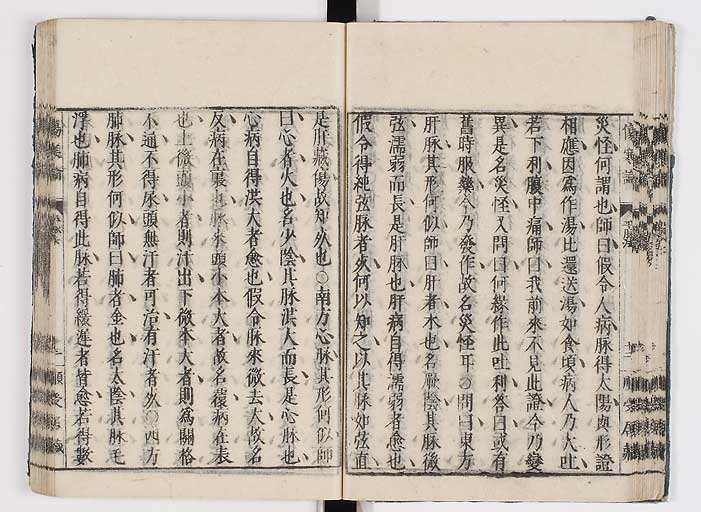 災怪何謂也師曰假令人病脉得太陽與形證
相應因爲作湯比還送湯如食頃病人乃大吐
若下利腹中痛師曰我前來不見此證今乃變
異是名災怪又問曰何緣作此吐利答曰或有
舊時服藥今乃發作故名災怪耳○問曰東方
肝脉其形何似師曰肝者木也名厥陰其脉微
弦濡弱而長是肝脉也肝病自得濡弱者愈也
假令得純弦脉者死何以知之以其脉如弦直
是肝藏傷故知死也○南方心脉其形何似師
曰心者火也名少陰其脉洪大而長是心脉也
心病自得洪大者愈也假令脉來微去大故名
反病在裏也脉來頭小本大者故名覆病在表
也上微頭小者則汗出下微本大者則爲關格
不通不得尿頭無汗者可治有汗者死○四方
肺脉其形何似師曰肺者金也名太陰其脉毛
浮也肺病自得此脉若得緩遲者皆愈若得數